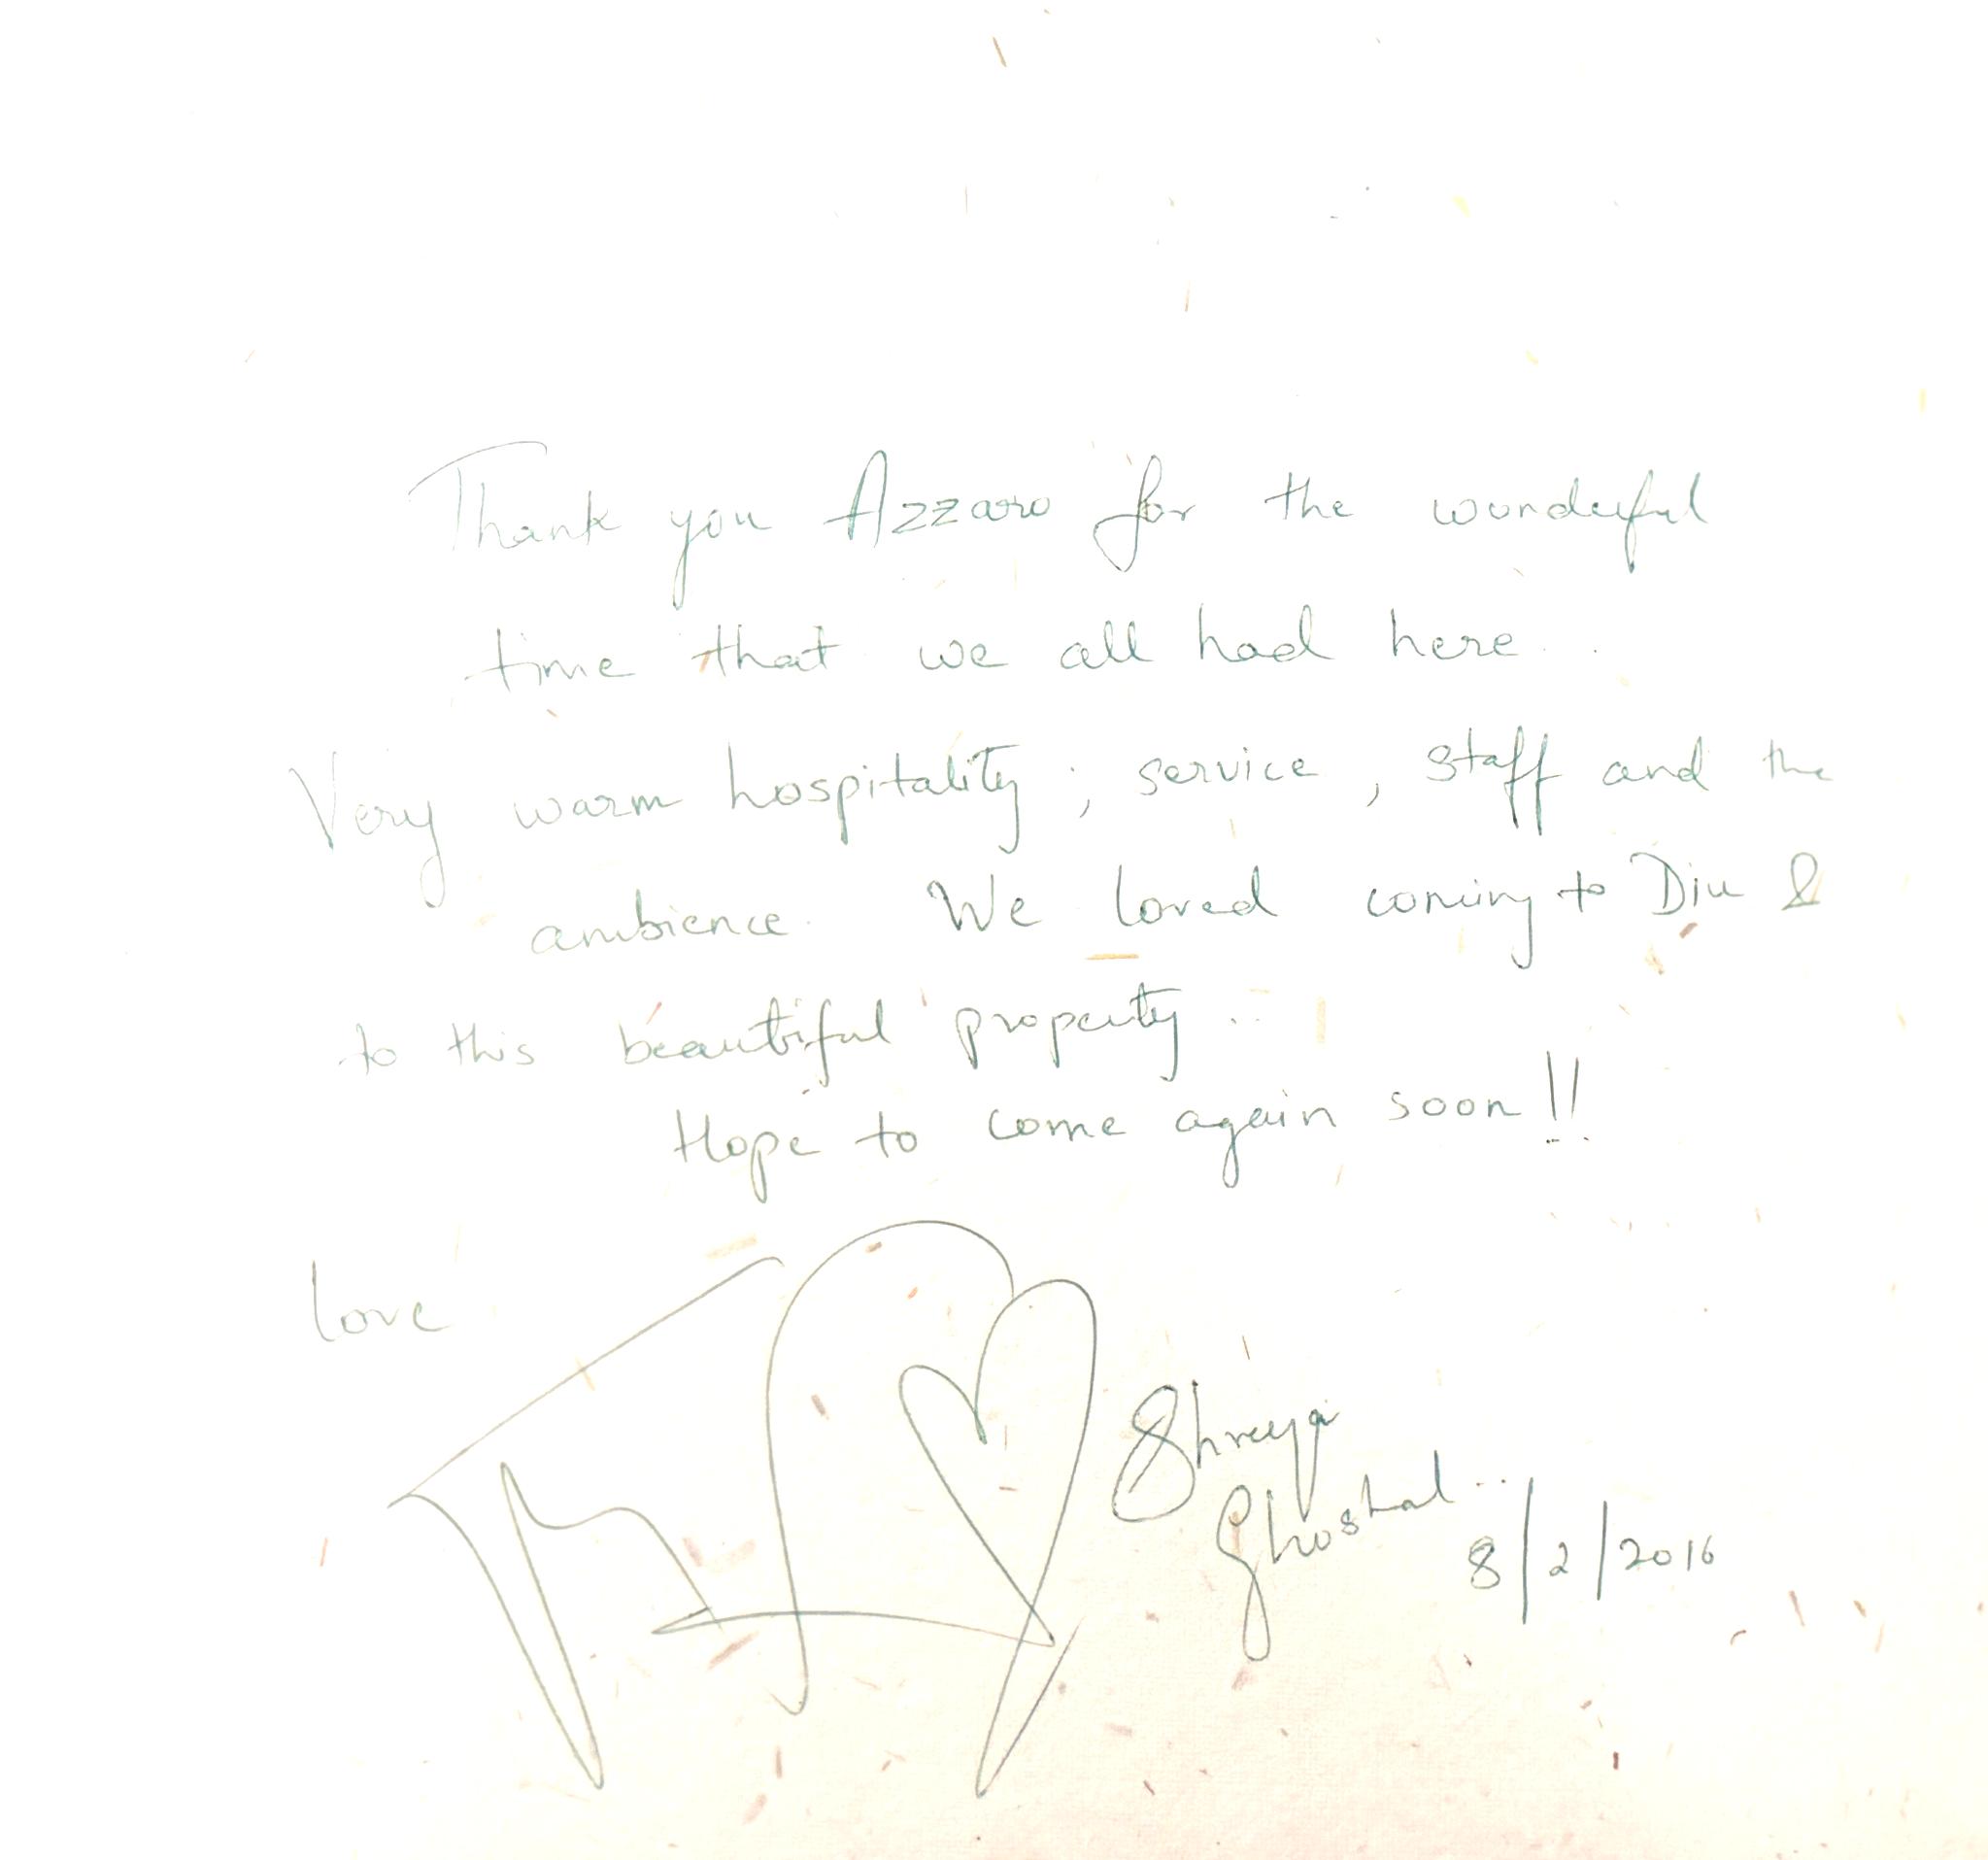 Thank you Azzaro for the wonderful
time that we all had here..
Very warm hospitality, service, staff and the
ambience. We loved coming to Diu &
to this beautiful property..
Hope to come again soon!!
love
Shreya
Ghoshal...
8/2/2016